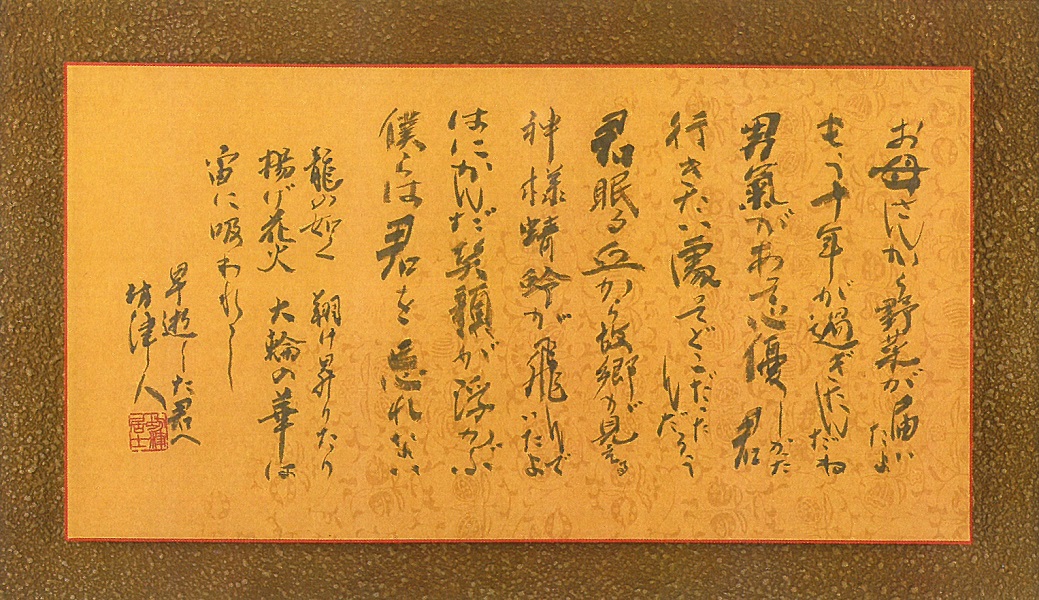 お母さんから野菜が届いたよ
もう十年が過ぎたんだね
男氣があって心優しかった君
行きたい處ってどこだったんだろう
君眠る丘から故郷が見える
神様蜻蛉が飛んでいたよ
はにかんだ笑顔が浮かぶ
僕らは君を忘れない
龍の如く 翔け昇りたり
揚げ花火 大輪の華は
宙に吸われし
早逝した君へ
坊津人